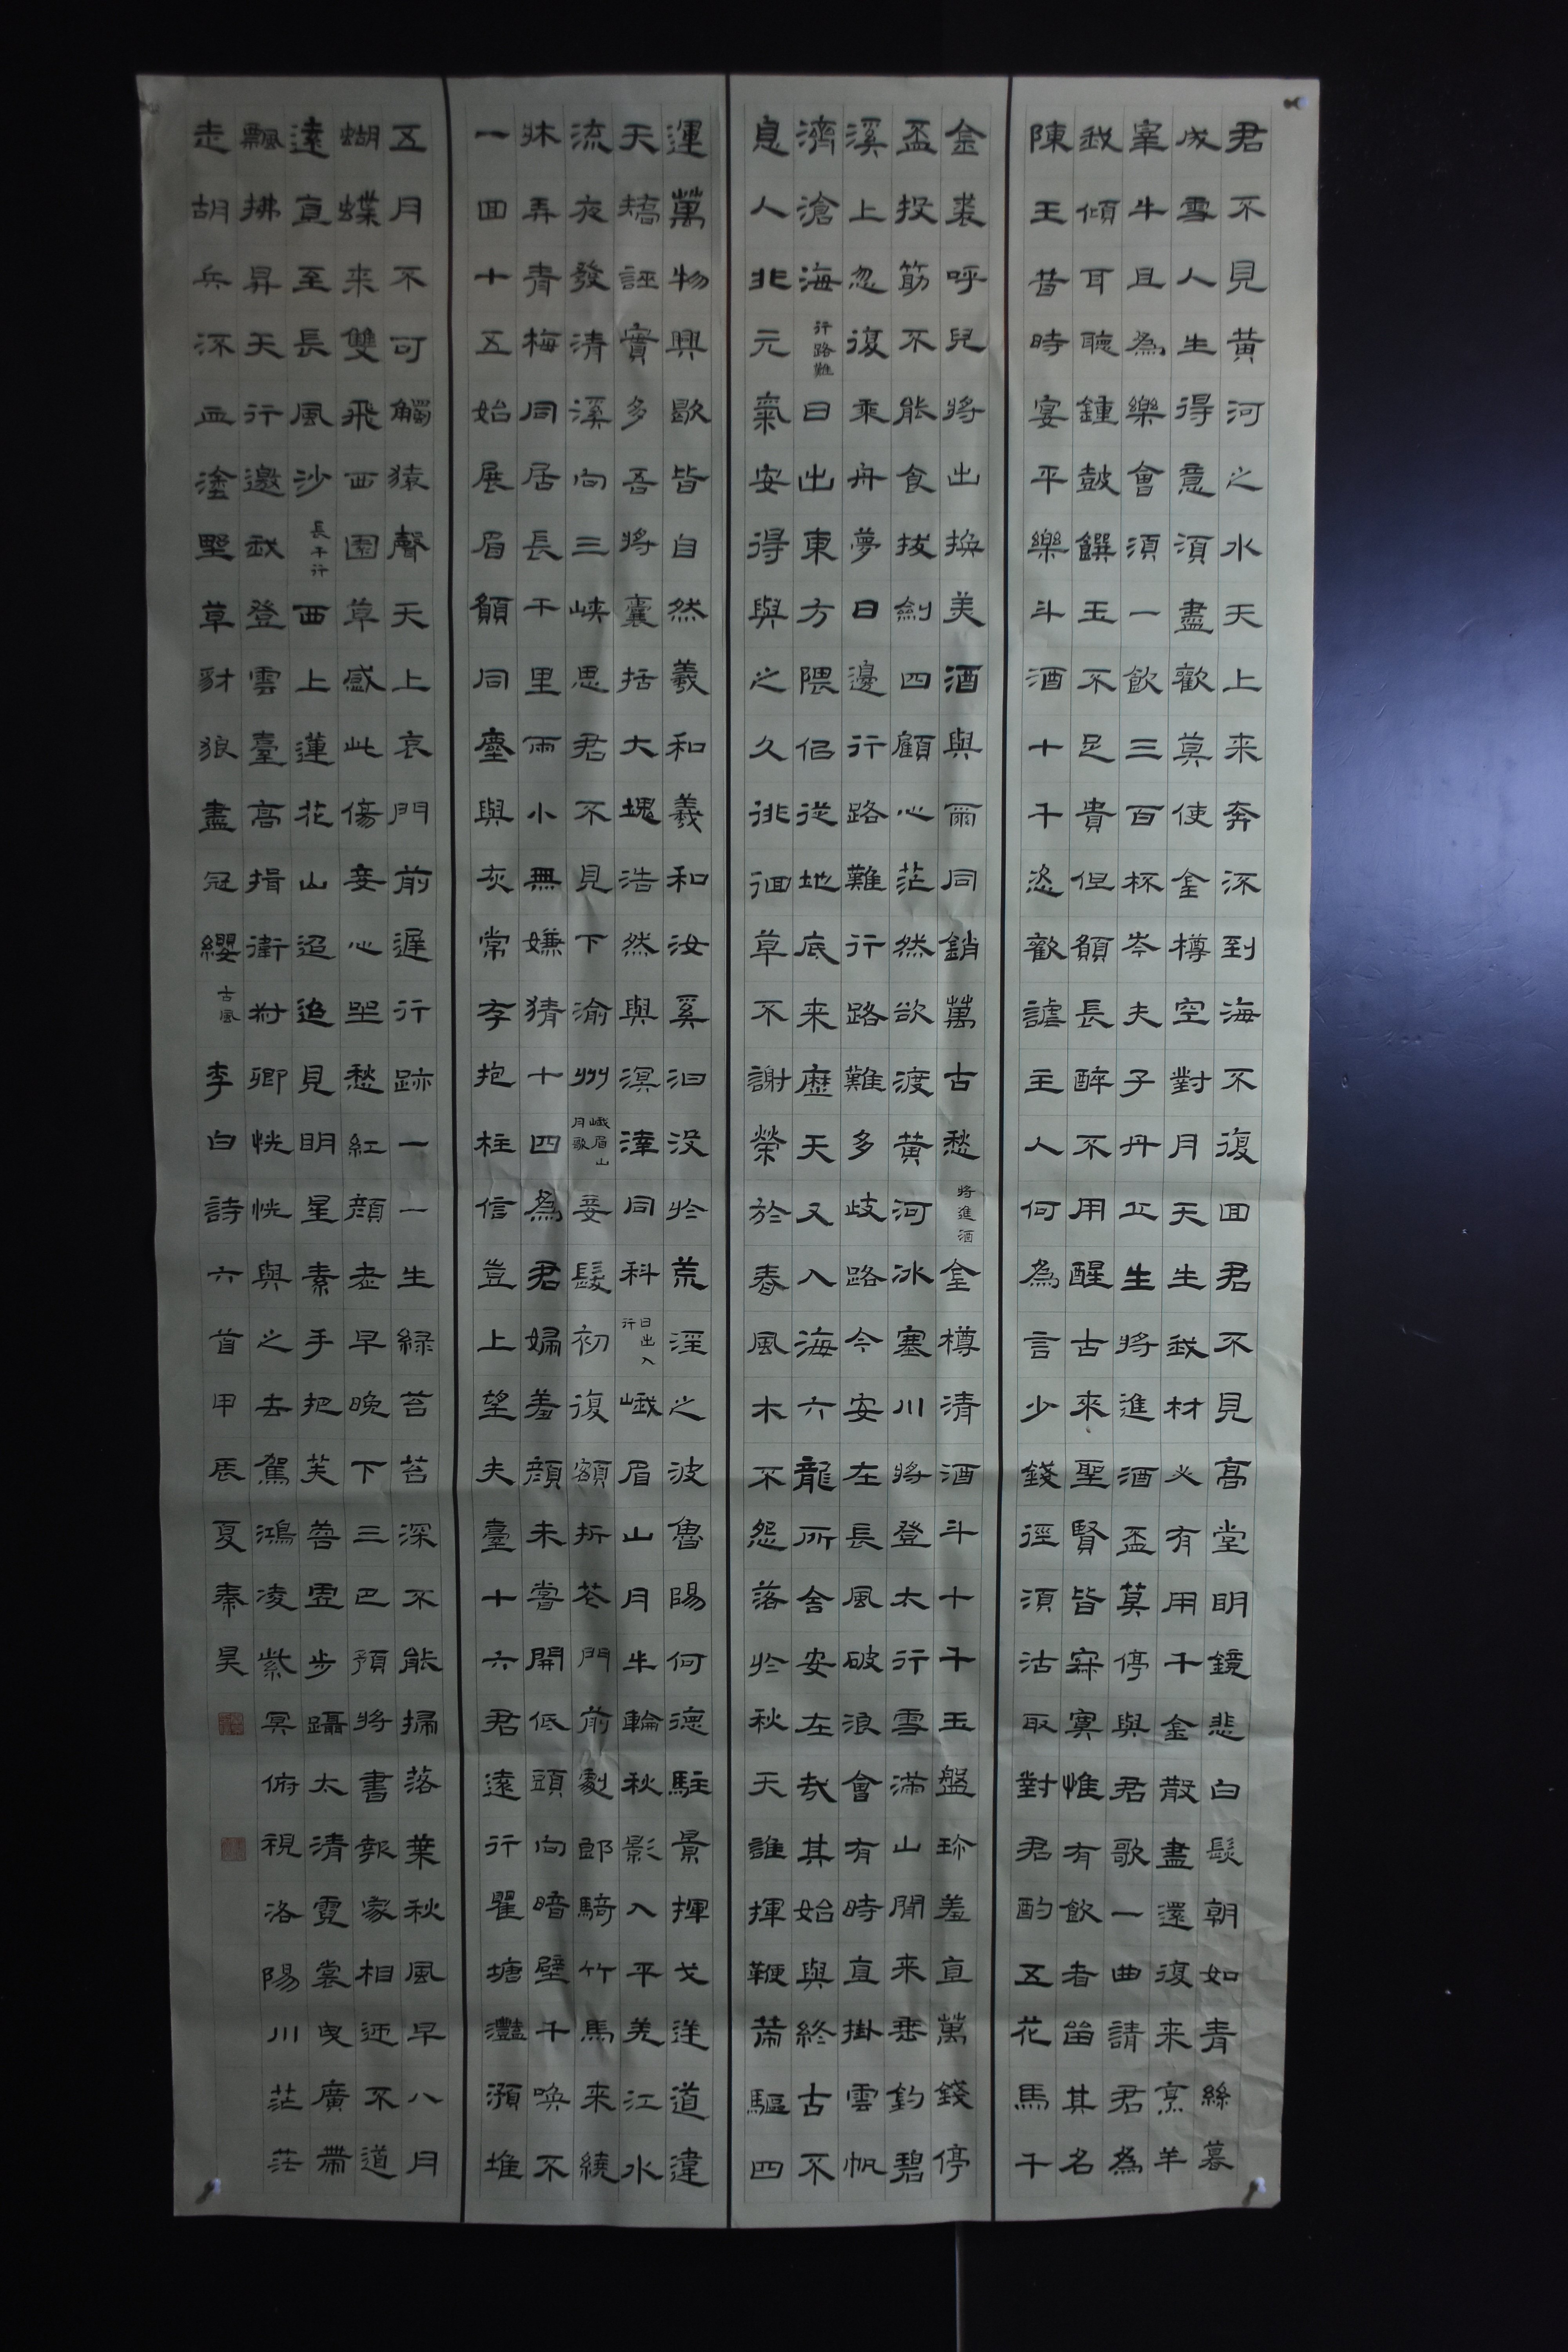 君不見黃河之水天上来奔流到海不復回君不見高堂明鏡悲白髮朝如青絲暮
成雪人生得意須盡歡莫使金樽空對月天生我材必有用千金散盡還復来烹羊
宰牛且為樂會須一飲三百杯岑夫子丹丘生將進酒盃莫停與君歌一曲請君為
我傾耳聽鍾鼓饌玉不足貴但願長醉不用醒古來聖賢皆寂寞惟有飲者留其名
陳王昔時宴平樂斗酒十千恣歡謔主人何為言少錢徑須沽取對君酌五花馬千
金裘呼兒將出換美酒與爾同銷萬古愁將進酒金樽清酒斗十千玉盤珍羞直萬錢停
盃投筯不能食拔劍四顧心茫然欲渡黃河冰塞川將登太行雪滿山閒来垂釣碧
溪上忽復乘舟夢日邊行路難行路難多歧路今安在長風破浪會有時直掛雲帆
濟滄海行路難日出東方隈佀從地底来歷天又入海六龍所舍安在哉其始與終古不
息人非元氣安得與之久徘徊草不謝榮於春風木不怨落於秋天誰揮鞭策驅四
運萬物興歇皆自然羲和羲和汝奚汩没於荒淫之波魯陽何德駐景揮戈逆道違
天矯誣實多吾將囊括大塊浩然與溟涬同科日出入行峨眉山月半輪秋影入平羌江水
流夜發清溪向三峽思君不見下渝州峨眉山月歌妾髮初復額折花門前劇郎騎竹馬来繞
牀弄青梅同居長干里兩小無嫌猜十四為君婦羞顏未嘗開低頭向暗壁千喚不
一回十五始展眉願同塵與灰常存抱柱信豈上望夫臺十六君遠行瞿塘灩澦堆
五月不可觸猿聲天上哀門前遲行跡一一生緑苔苔深不能掃落葉秋風早八月
蝴蝶来雙飛西園草感此傷妾心坐愁紅顏老早晚下三巴預將書報家相迎不道
遠直至長風沙長干行西上蓮花山迢追見明星素手把芙蓉虛步躡太清霓裳曳廣帶
飄拂昇天行邀我登雲臺高揖衛叔卿恍恍與之去駕鴻凌紫冥俯視洛陽川茫茫
走胡兵流血塗野草豺狼盡冠纓古風李白詩六首甲辰夏秦昊